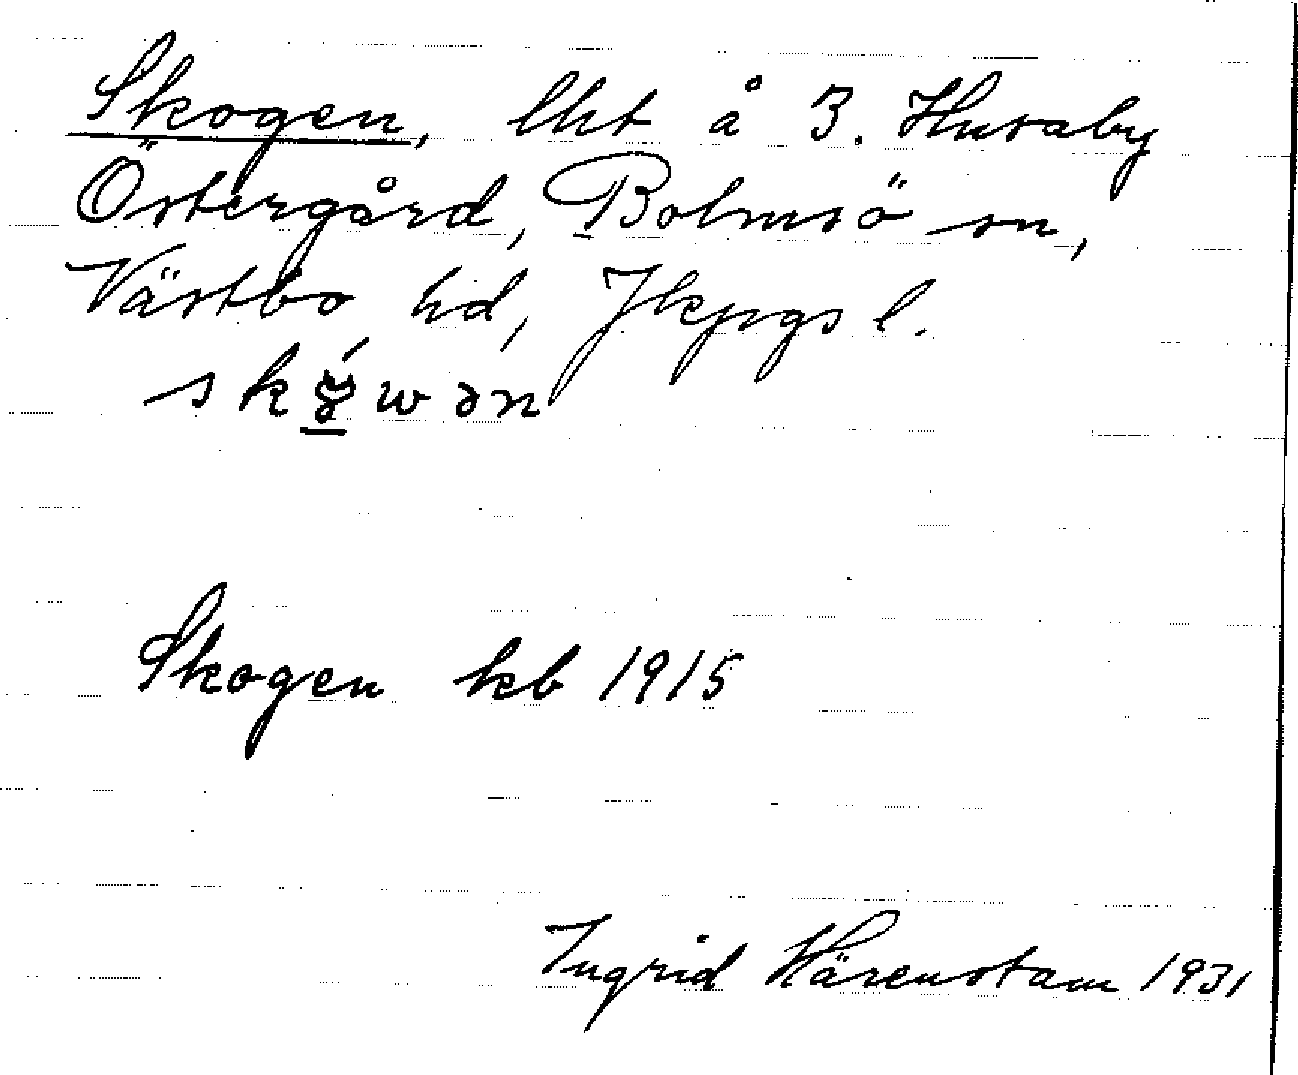 Skogen, lht å 3. Husaby
Östergård, Bolmsö sn,
Västbo hd, Jkpgs l.
Skogen kb 1915
Ingrid Härenstam 1931